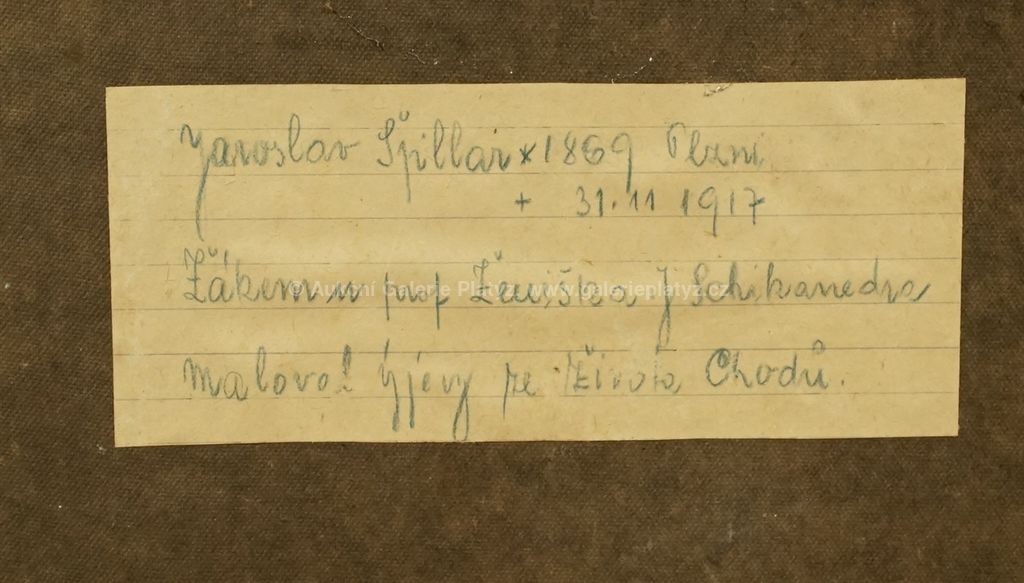 Jaroslav Špillar * 1869 Plzni
+ 31.11 1917
Žákem u prof Ženiška J Schikanedra
© Aukční Galerie Platýz, www.galerieplatyz.cz
Maloval výjevy ze života Chodů.